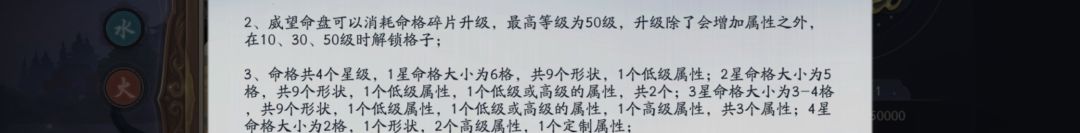 2、威望命盘可以消耗命格碎片升级，最高等级为50级，升级除了会增加属性之外，
在10、30、50级时解锁格子；
水
3、命格共4个星级，1星命格大小为6格，共9个形状，1个低级属性；2星命格大小为5
格，共9个形状，1个低级属性，1个低级或高级的属性，共2个；3星命格大小为3-4格
火
，共9个形状，1个低级属性，1个低级或高级的属性，1个高级属性，共3个属性；4星
命格大小为2格，1个形状，2个高级属性，1个定制属性；
1
50000